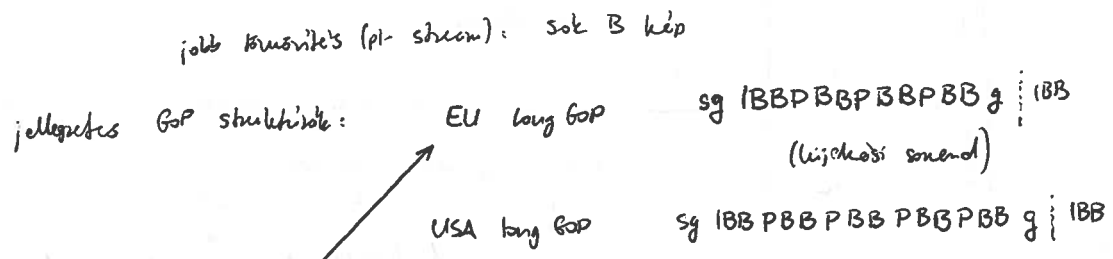 jobb tömörítés (pl. stream): sok B kép
jellegzetes GoP struktúrák: EU long GoP sg IBBPBBPBBPBB g ¦ IBB
(kijelzési sorrend)
USA long GoP sg IBB PBB PBB PBB PBB g ¦ IBB